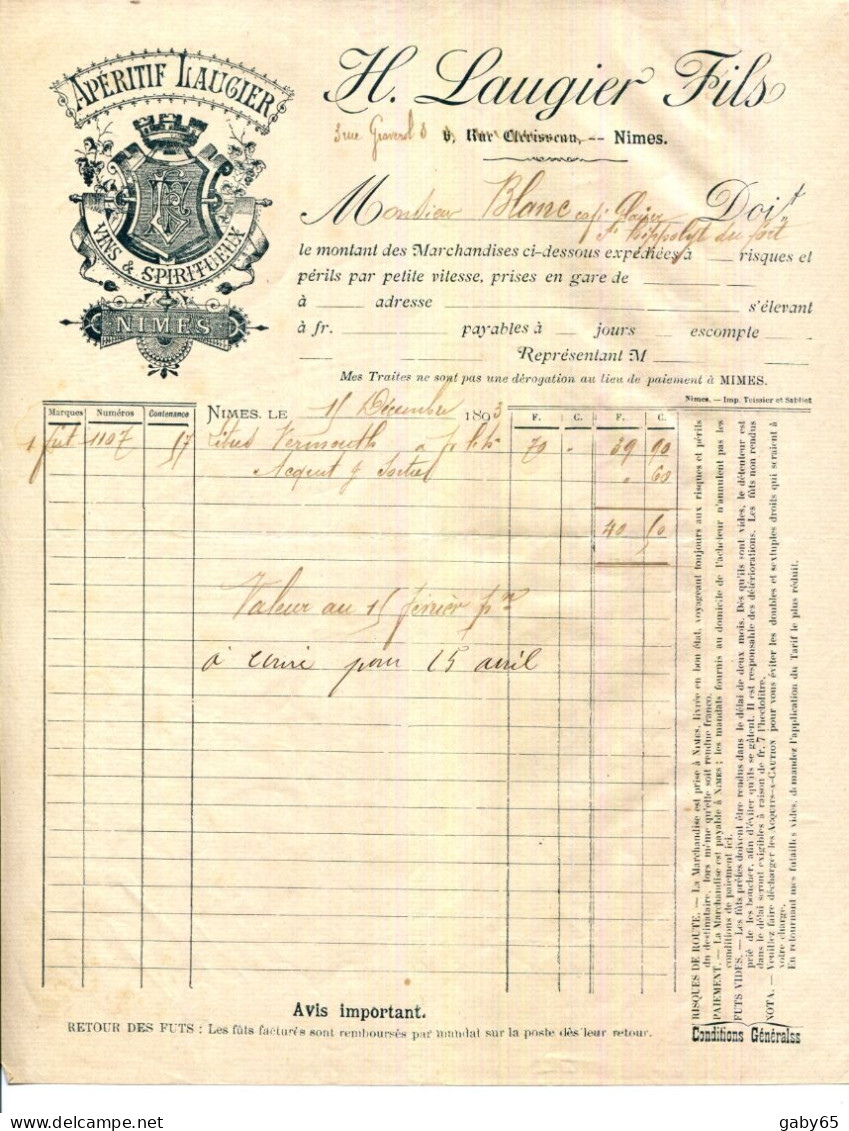 APÉRITIF LAUGIER
VINS & SPIRITUEUX
NIMES
H. Laugier Fils
3 rue Graverol 3 6, Rue Clérisseau, -- Nimes.
Monsieur Blanc café Doit
St hippolyte du fort
le montant des Marchandises ci-dessous expédiées à risques et
périls par petite vitesse, prises en gare de
à adresse s'élevant
à fr. payables à jours escompte
Représentant M
Mes Traites ne sont pas une dérogation au lieu de paiement à MIMES.
Nimes. — Imp. Teissier et Sabliet
Marques Numéros Contenance NIMES, LE 15 Décembre 1893 F. C. F. C.
1 fut 1107 57 Litres Vermouth à 70 " 39 90
Acquit " 60
40 50
Valeur au 15 février
à pour 15 avril
RISQUES DE ROUTE. — La Marchandise est prise à NIMES, livrée en bon état, voyageant toujours aux risques et périls
du destinataire, lors même qu'elle soit rendue franco.
PAIEMENT. — La Marchandise est payable à NIMES ; les mandats fournis au domicile de l'acheteur n'annulent pas les
conditions de paiement ici.
FUTS VIDES. — Les fûts prêtés doivent être rendus dans le délai de deux mois. Dès qu'ils sont vides, le détenteur est
prié de les boucher, afin d'éviter qu'ils se gâtent. Il est responsable des détériorations. Les fûts non rendus
dans le délai seront exigibles à raison de fr. 7 l'hectolitre.
NOTA. — Veuillez faire décharger les ACQUITS-A-CAUTION pour vous éviter les doubles et sextuples droits qui seraient à
votre charge.
En retournant mes futailles vides, demandez l'application du Tarif le plus réduit.
Conditions Généralss
Avis important.
RETOUR DES FUTS : Les fûts facturés sont remboursés par mandat sur la poste dès leur retour.
gaby65